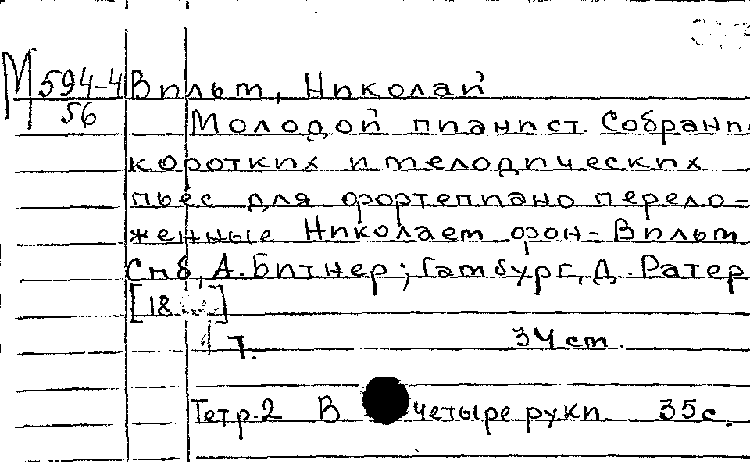 М 594-4 Вильт, Николай
56
Молодой пианист. Собрани
коротких и мелодических
пьес для фортепиано перело-
женные Николаем фон-Вильт
Спб, А. Битнер; Гамбург, Д. Ратер
[18
7. 34 cm.
Тетр. 2 В четыре руки 35 с.